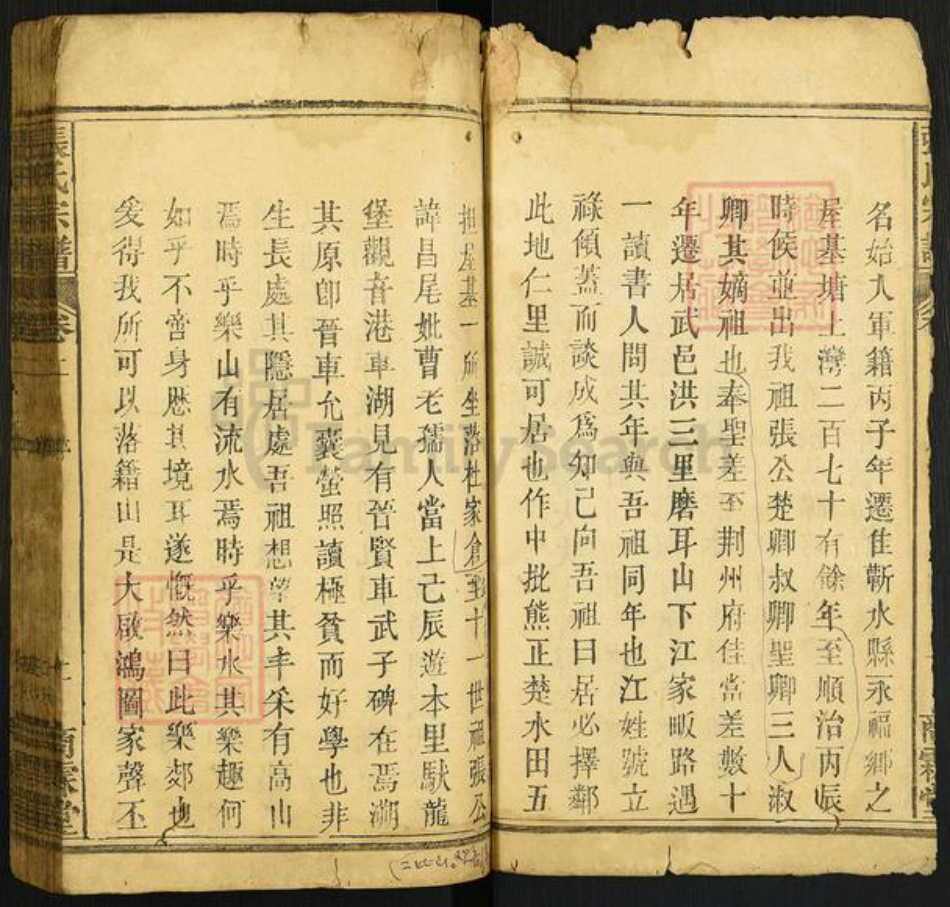 名始九軍籍丙子年遷隹蘄水縣永福鄉之
屋基塘上灣二百七十有餘年至順治丙辰
時候並出我祖張公楚卿叔卿聖卿三人淑
卿其嫡祖也奉聖差至荆州府佳當差數十
年遷居武邑洪三里磨耳山下江家畈路遇
一讀書人問其年與吾祖同年也江姓號立
祿傾蓋而談成爲知己向吾祖曰居必擇鄰
此地仁里誠可居也作中批熊正楚水田五
担屋基一所坐落杜家倉至十一世祖張公
諱昌尾妣曹老孺人當上己辰遊本里馱龍
堡觀音港車湖見有晉賢車武子碑在焉溯
其原卽晉車允囊螢照讀極貧而好學也非
生長處其隱居處吾祖想 其丰采有高山
焉時乎樂山有流水焉時乎樂水其樂趣何
如乎不啻身歷其境耳遂慨然曰此樂郊也
爰得我所可以落籍由是大啟鴻圖家聲丕
張氏宗譜